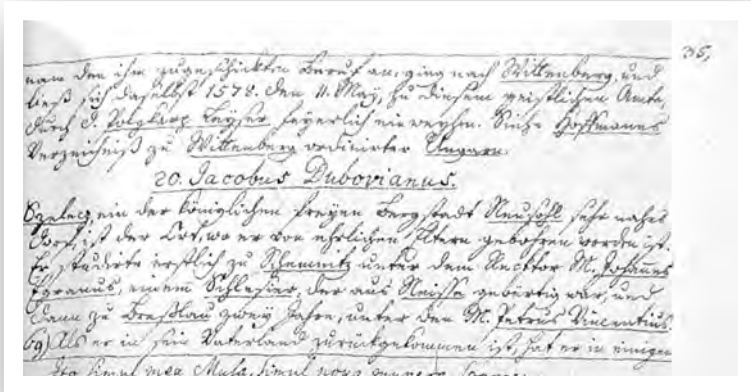 35,
nam den ihm zugeschickten Beruf an, ging nach Wittenberg, und
ließ sich daselbst 1578. den 11. May, zu diesem geistlichen Amte,
durch D. Polykarp Leyser feyerlich einweyhen. Siehe Hoffmanns
Verzeichniß zu Wittenberg ordinirter Ungarn.
20. Jacobus Dubovianus.
Szelecz, ein der königlichen freyen Bergstadt Neusohl sehr nahes
Dorf, ist der Ort, wo er von ehrlichen Eltern gebohren worden ist.
Er studirte erstlich zu Schemnitz unter dem Recktor M. Johannes
Egranus, einem Schlesier, der aus Neisse gebürtig war, und
dann zu Breßlau zwey Jahre, unter den M. Petrus Vincentius.
69) Als er in sein Vaterland zurückgekommen ist, hat er in einigen
simul mea Musa, simul nova munera